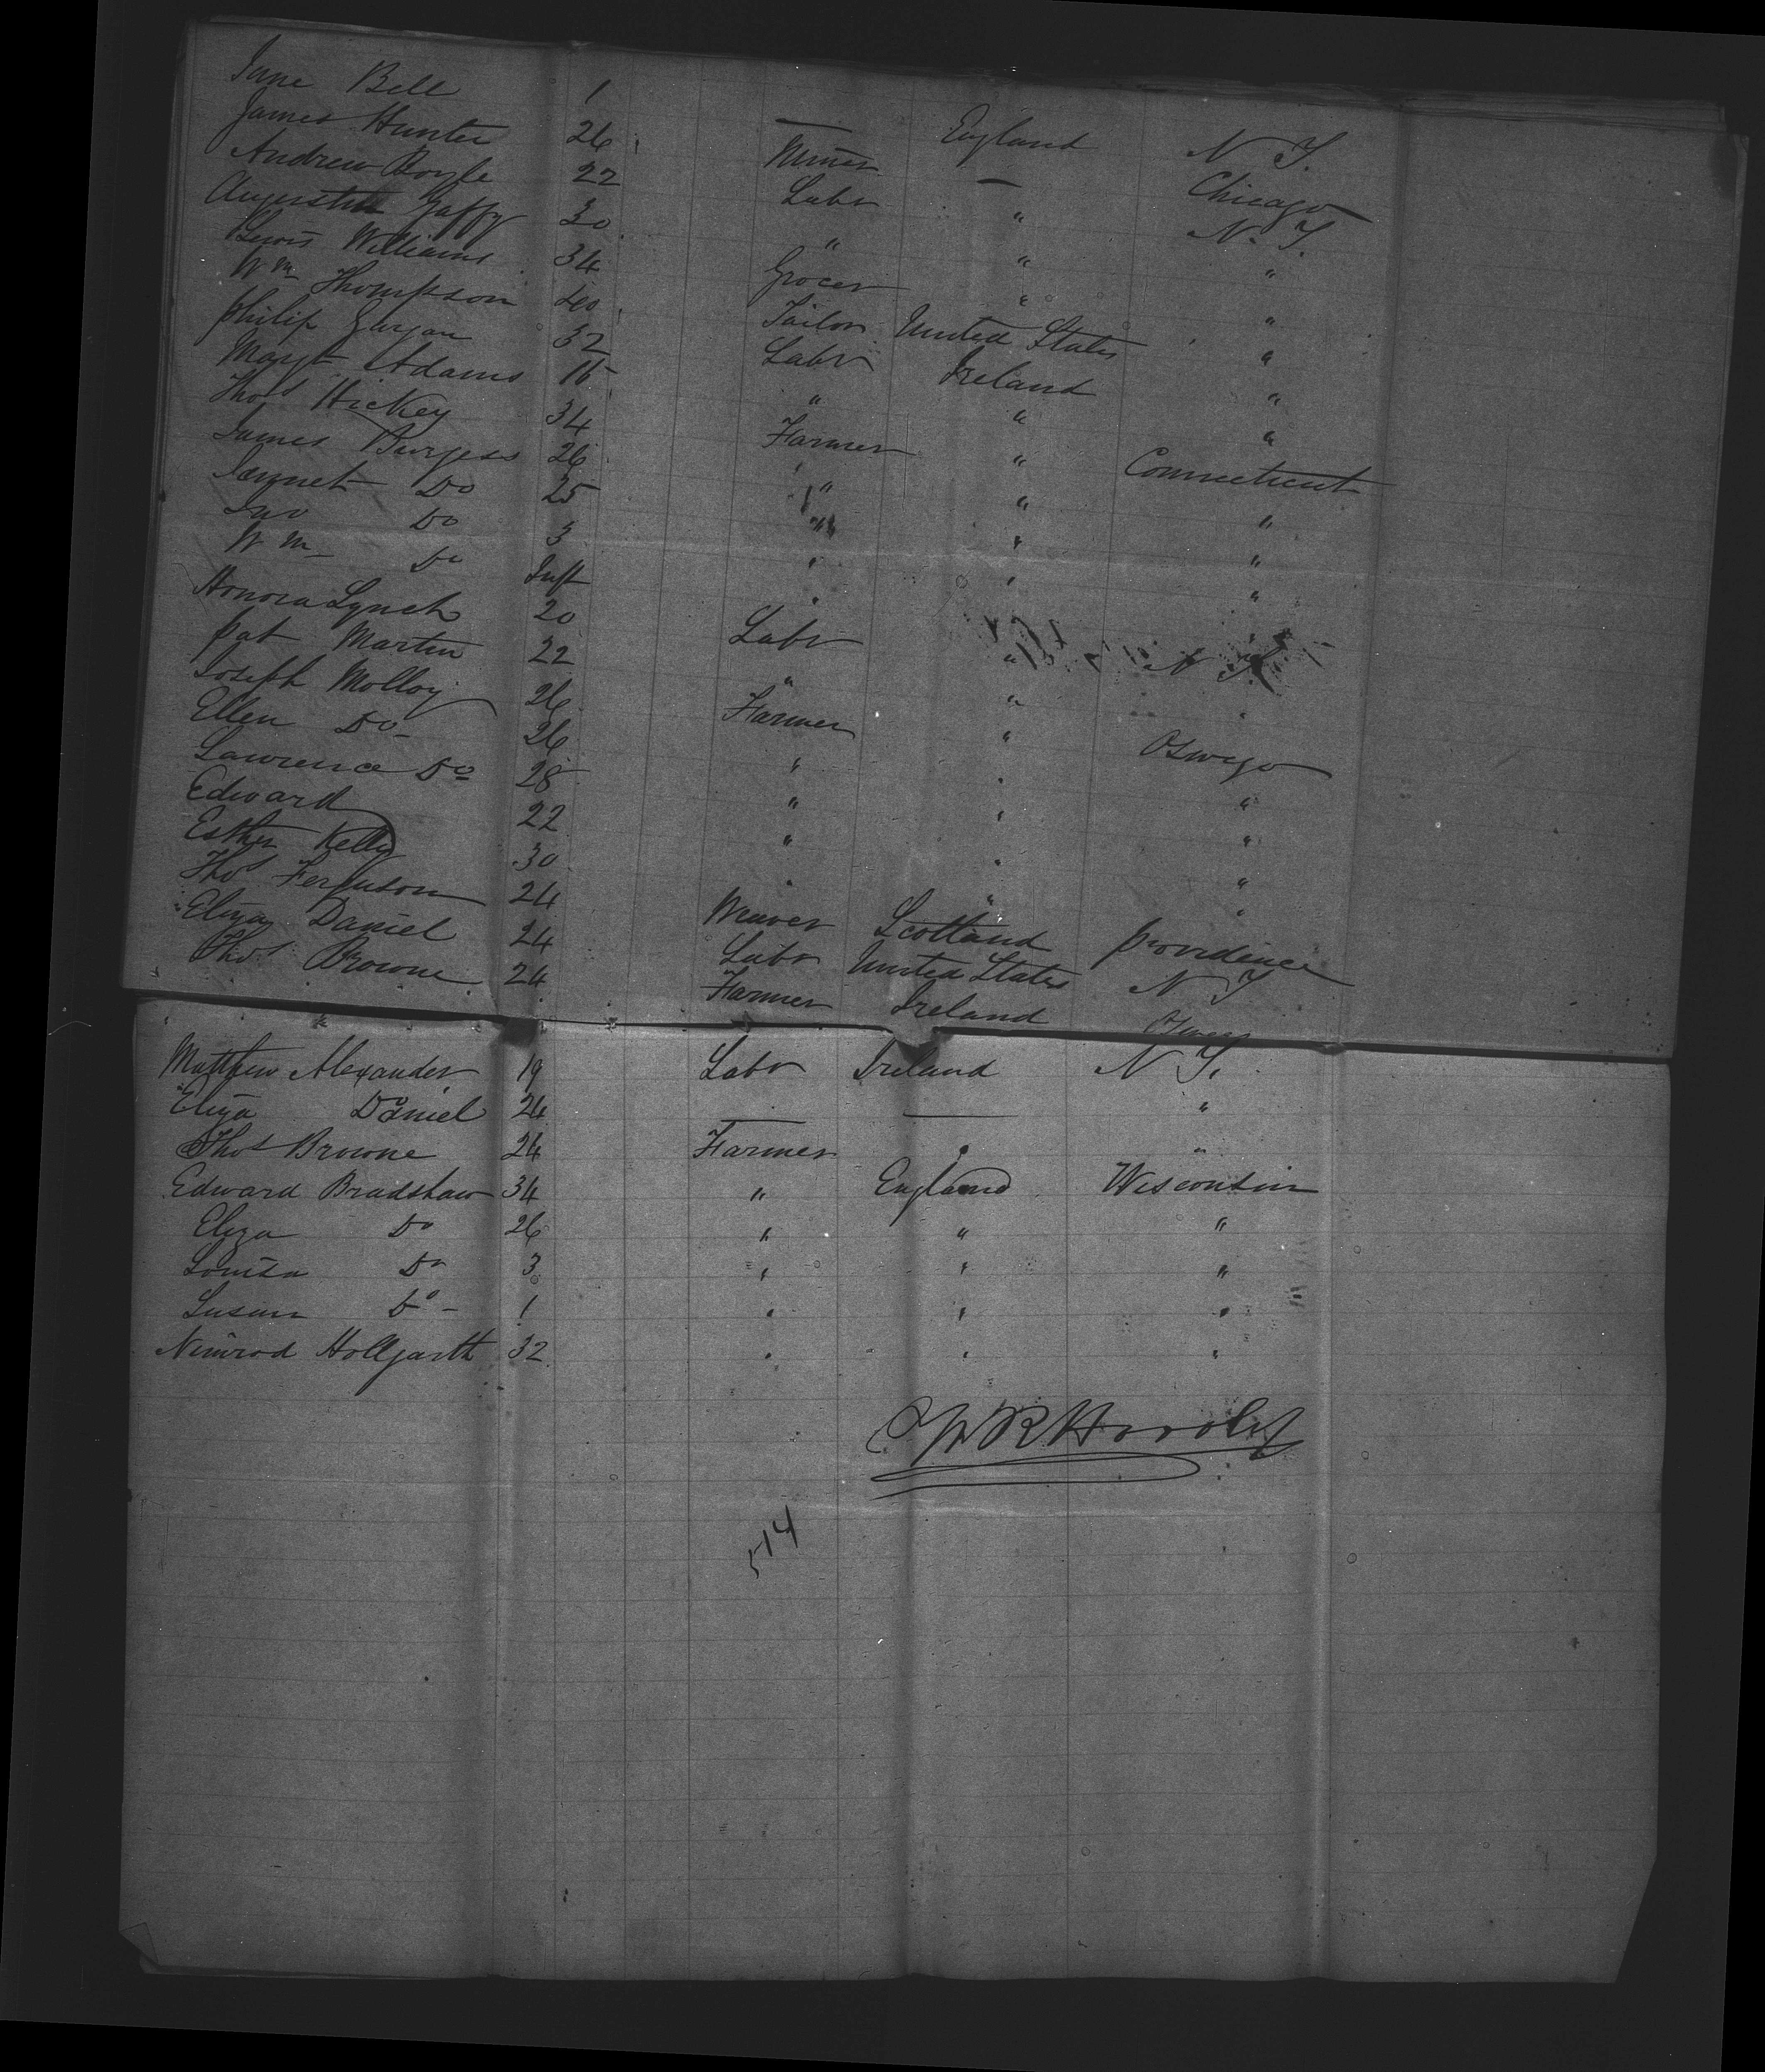 Jane Bell 1 — England N Y.
James Hunter 26 Miner — Chicago
Andrew Boyle 22 Labr " N. Y.
Gaffy 30 " " "
Lewis Williams 34 Grocer " "
Wm Thompson 40 Tailor United States "
Philip 32 Labr Ireland "
Margt Adams 16 " " "
Thos Hickey 34 Farmer " Connecticut
James Burgess 26 " " "
Do 25 " " "
Jno Do 3 " " "
Wm Do Inft "
Honora Lynch 20 Labr " N Y
Pat Martin 22 " " "
Joseph Molloy 26 Farmer " Oswego
Ellen Do 26 " " "
Lawrence Do 28 " " "
Edward 22 " " "
Esther Kelly 30 " " "
Thos Ferguson 24 Weaver Scotland Providence
Eliza Daniel 24 Labr United States N Y
Thos Browne 24 Farmer Ireland Oswego
Matthew Alexander 19 Labr Ireland N Y.
Eliza Daniel 24 — — "
Thos Browne 24 Farmer " "
Edward Bradshaw 34 " England Wisconsin
Eliza Do 26 " " "
Louisa Do 3 " " "
Susan Do 1 " " "
Nimrod Hollgarth 32 " " "
514